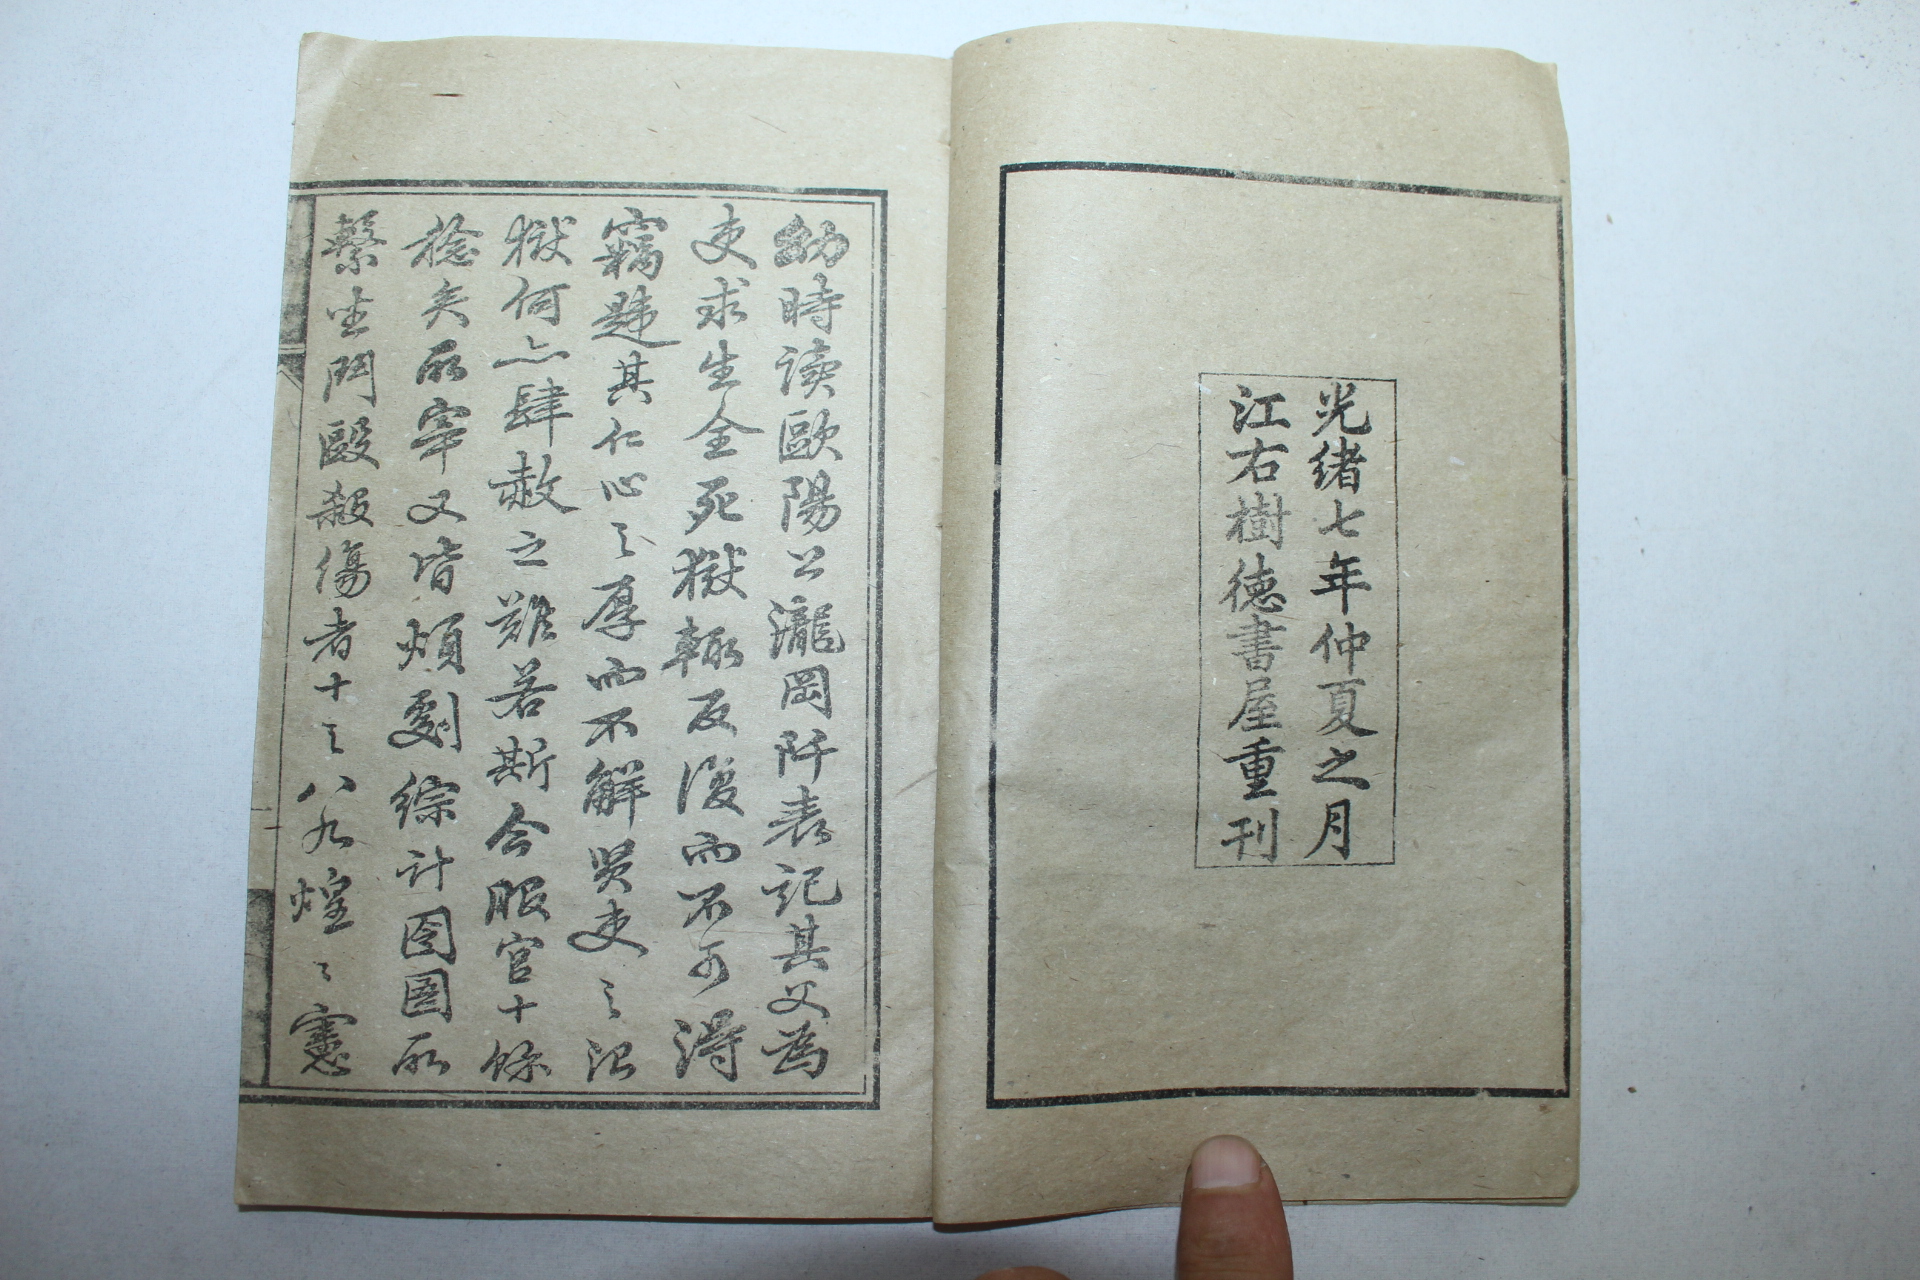 光緒七年仲夏之月
江右樹德書屋重刊
幼時读歐陽公瀧岡阡表記其父為
吏求生全死獄輒反復而不可得
竊韙其仁心之厚而不解賢吏之治
獄何亦肆赦之難若斯今服官十餘
稔矣所宰又皆煩劇綜計囹圄所
繫坐鬥毆殺傷者十之八九煌〻憲